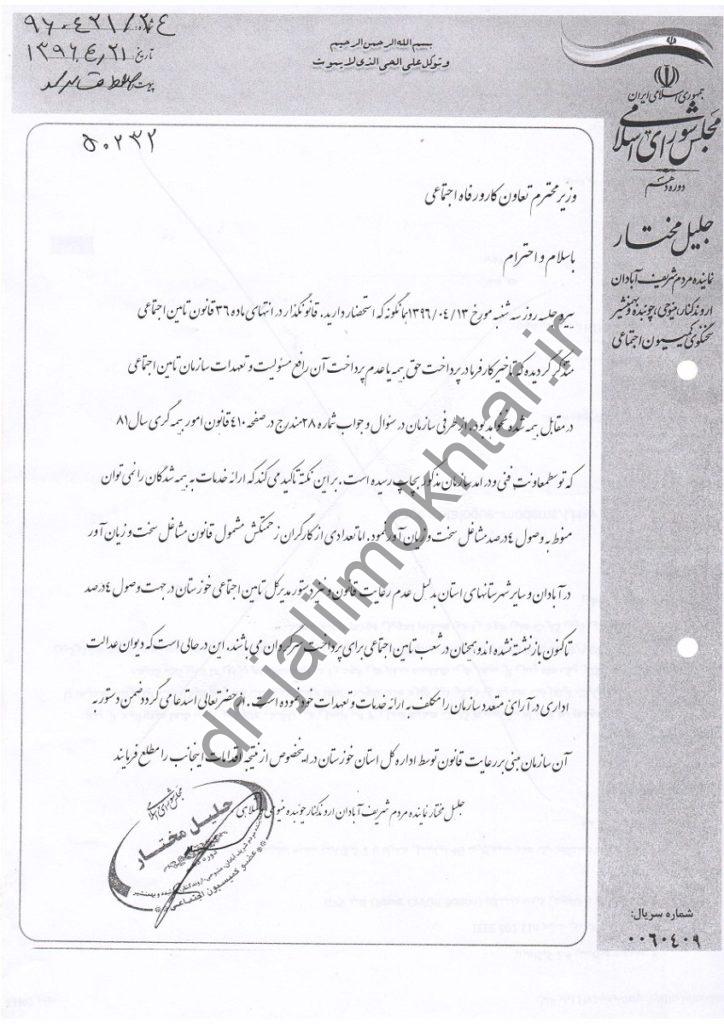 بسم الله الرحمن الرحیم
و توکل علی الحی الذی لا یموت
شماره: ۹۶۰۴۲۱/۲۴
تاریخ ۱۳۹۶/۴/۲۱
پیوست
جمهوری اسلامی ایران
مجلس شورای اسلامی
دوره دهم
جلیل مختار
نماینده مردم شریف آبادان
اروندکنار، منیوحی، چوئبده و بهمنشیر
سخنگوی کمیسیون اجتماعی
۵۰۲۳۲
وزیر محترم تعاون کار و رفاه اجتماعی
با سلام و احترام
پیرو جلسه روز سه شنبه مورخ ۱۳۹۶/۰۴/۱۳ همانگونه که استحضار دارید. قانونگذار در انتهای ماده ۳۶ قانون تامین اجتماعی
متذکر گردیده که تاخیر کارفرما در پرداخت حق بیمه یا عدم پرداخت آن رافع مسئولیت و تعهدات سازمان تامین اجتماعی
در مقابل بیمه شده نخواهد بود. از طرفی سازمان در سئوال و جواب شماره ۲۸ مندرج در صفحه ۴۱۰ قانون امور بیمه گری سال ۸۱
که توسط معاونت فنی و درآمد سازمان مذکور بچاپ رسیده است. بر این نکته تاکید می کند که ارائه خدمات به بیمه شدگان را نمی توان
منوط به وصول ۴ درصد مشاغل سخت و زیان آور نمود. اما تعدادی از کارگران زحمتکش مشمول قانون مشاغل سخت و زیان آور
در آبادان و سایر شهرستانهای استان بدلیل عدم رعایت قانون و دستور مدیر کل تامین اجتماعی خوزستان در جهت وصول ۴ درصد
تاکنون بازنشسته نشده اند و همچنان در شعب تامین اجتماعی برای پرداخت سرگردان می باشند. این در حالی است که دیوان عدالت
اداری در آرای متعدد سازمان را مکلف به ارائه خدمات و تعهدات خود نموده است. از حضرتعالی استدعا می گردد ضمن دستور به
آن سازمان مبنی بر رعایت قانون توسط اداره کل استان خوزستان در اینخصوص از نتیجه اقدامات اینجانب را مطلع فرمایند
جلیل مختار نماینده مردم شریف آبادان اروندکنار چوئبده منیوحی
مجلس شورای اسلامی
جلیل مختار
عضو کمیسیون اجتماعی
dr-jalilmokhtar.ir
شماره سریال:
۰۰۶۰۴۰۹